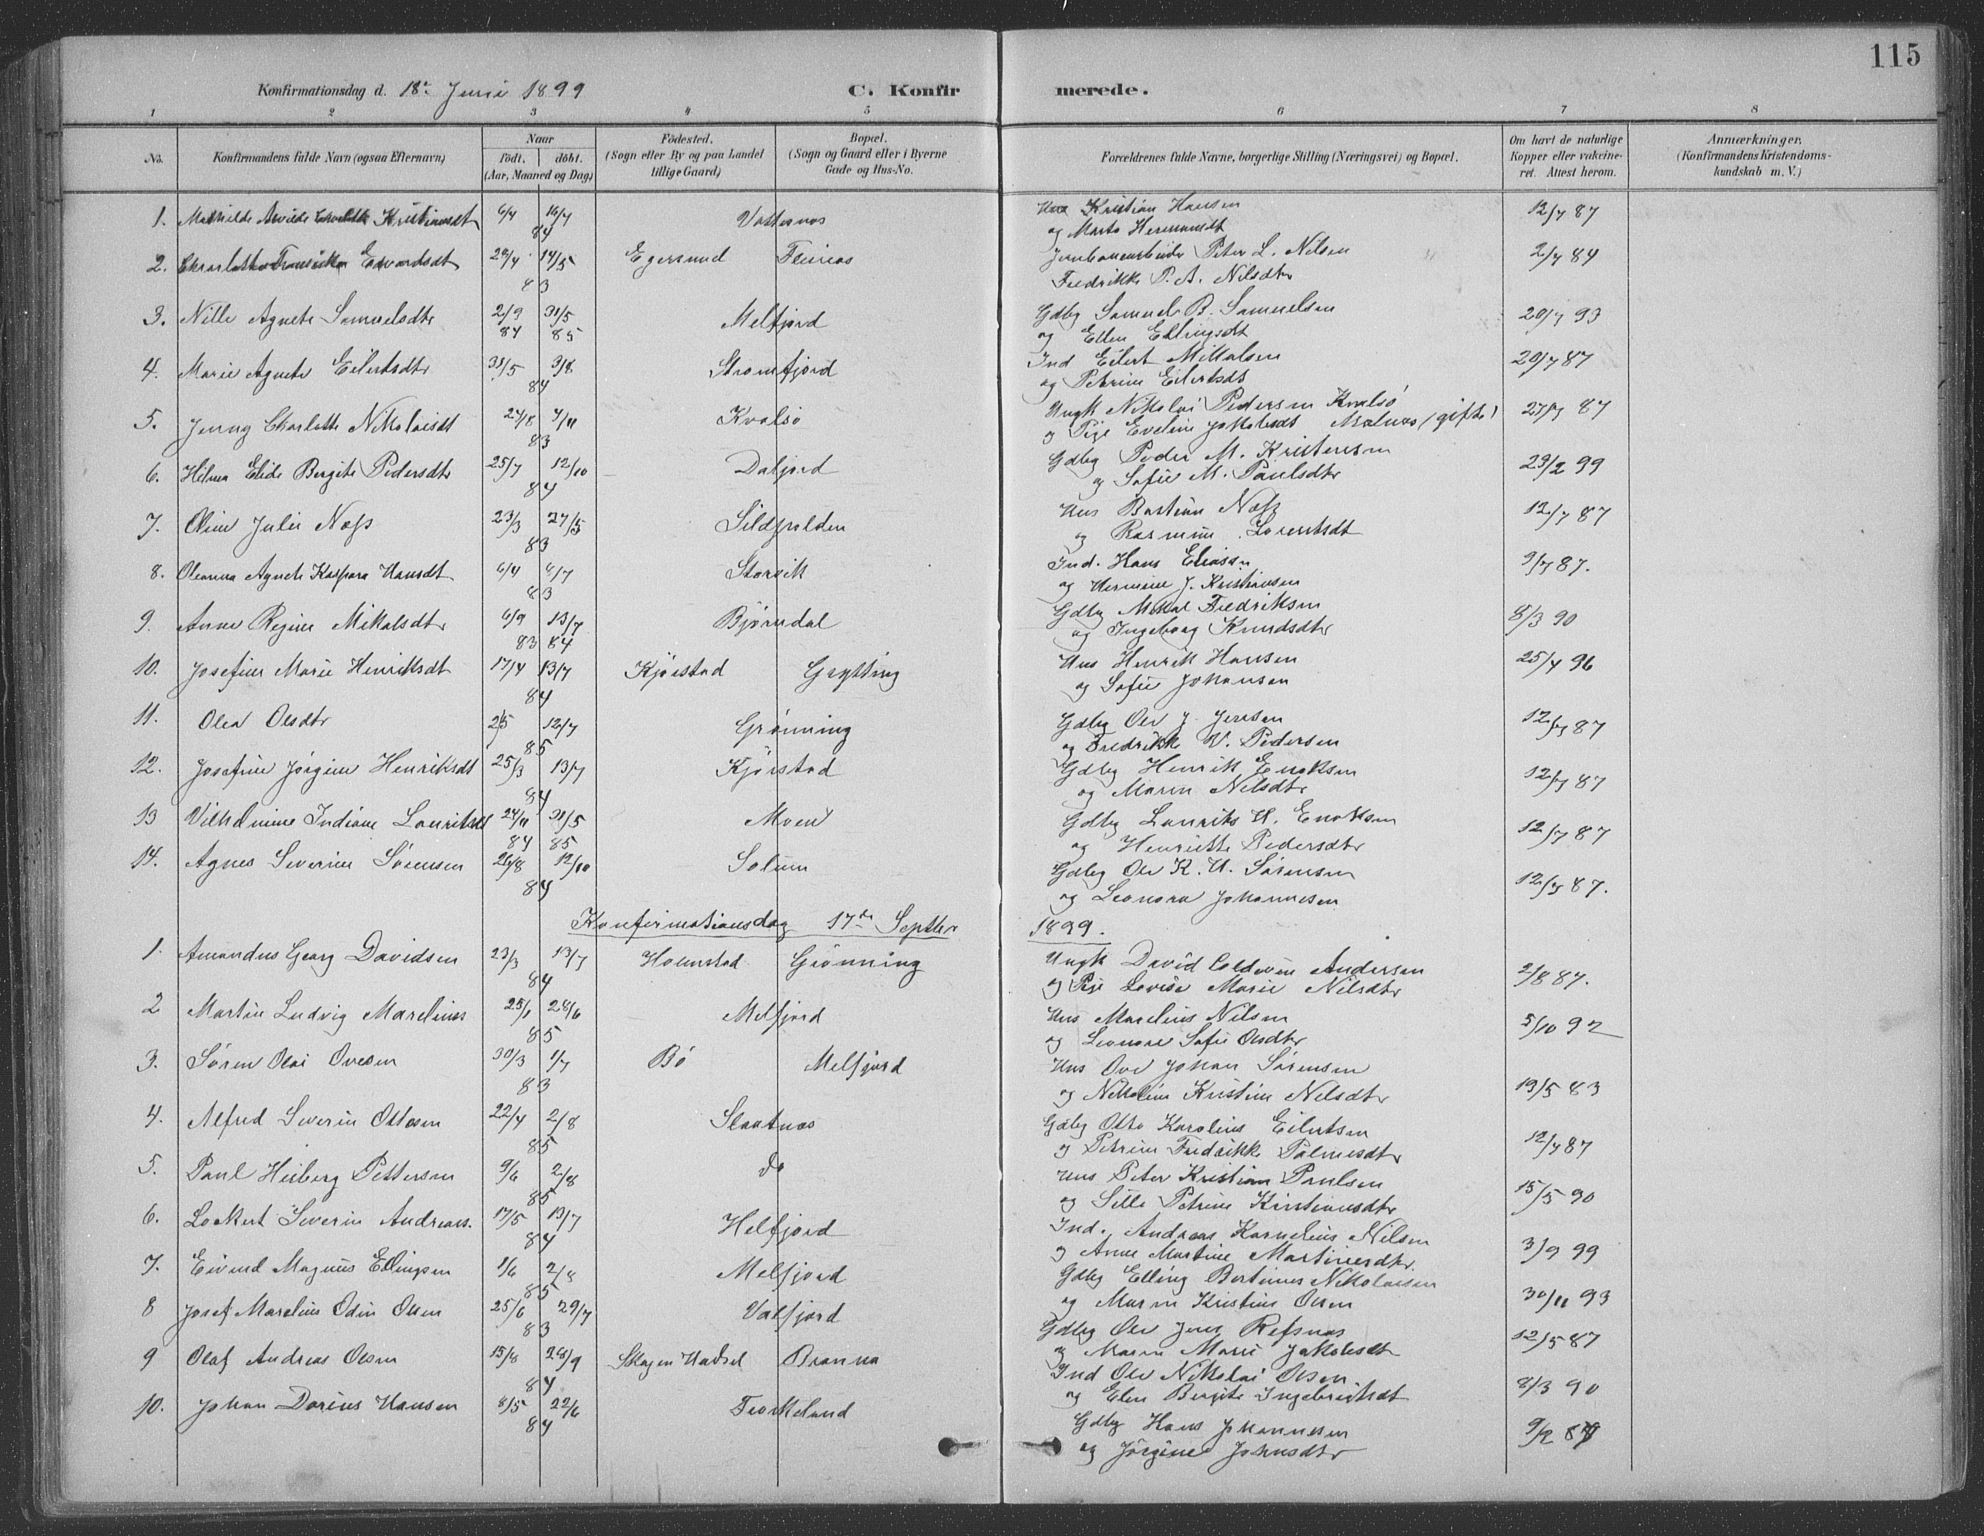 115
Konfirmationsdag d. 18de Juni 1899 C. Konfirmerede.
1 2 3 4 5 6 7 8
No. Konfirmandens fulde Navn (ogsaa Efternavn) Naar født. døbt. (Aar, Maaned og Dag) Fødested. (Sogn eller By og paa Landet tillige Gaard) Bopæl. (Sogn og Gaard eller i Byerne Gade og Hus-No. Forældrenes fulde Navne, borgerlige Stilling (Næringsvei) og Bopæl. Om havt de naturlige Kopper eller vakcineret. Attest herom. Anmærkninger. (Konfirmandens Kristendomskundskab m. V.)
1. Mathilde Kristiansdt 6/4 16/7 84 Vottesnæs Kristian Hansen 12/7 87
og Marta Hermansdt
2. Charlotte Edvardsdt 29/4 14/5 83 Egersund Peter L. Nilsen 2/7 84
Fredrikke P. A. Nilsdtr
3. Nille Agnete Samuelsdtr 2/9 84 31/5 85 Melfjord Gdbg Samuel B. Samuelsen 20/7 93
og Ellen Ellingsdt
4. Marie Agnete Eilertsdtr 31/5 3/8 84 Stromfjord Ind Eilert Mikalsen 20/7 87
og Petrine Eilertsdt
5. Jenny Charlotte Nikolaisdt 24/8 4/11 83 Kvalsø Ungk Nikolai Pedersen Kvalsø 27/7 87
og Pige Eveline Jakobsdt Malnæs (gifte)
6. Hilma Elide Bergite Pedersdtr 25/7 12/10 84 Dalfjord Gdbg Peder M. Kristensen 23/2 99
og Sofie M. Paulsdtr
7. Oline Julie Næss 23/3 27/5 83 Sildpolden Hus Bastian Næss 12/7 87
og Rasmine Lorentsdt
8. Oleanna Agnete Kaspara Hansdt 6/4 6/7 83 Storvik Ind. Hans Eliassn 9/7 87.
og Hermine J. Kristiansen
9. Anne Regine Mikalsdtr 6/9 83 13/7 84 Bjørndal Gdbg Mikal Fredriksen 8/3 90
og Ingeborg Knudsdtr
10. Josefine Marie Henriksdt 17/4 13/7 84 Kjørstad Grytting Hus Henrik Hansen 25/4 96
og Sofie Johansen
11. Olea Olsdtr 12/7 85 Grønning Gdbg Ole J. Jensen 12/7 87
og Fredrikke V. Pedersen
12. Josefine Jørgine Henriksdt 25/3 13/7 84 Kjørstad Gdbg Henrik Enoksen 12/7 87
og Maren Nilsdtr
13 Vilhelmine Indiane Lauritsdt 24/11 84 31/5 85 Moen Gdbg Laurits H. Enoksen 12/7 87
og Henriette Pedersdtr
14. Agnes Severine Sørensen 26/8 12/10 84 Solum Gdbg Ole K. H. Sørensen 12/7 87.
og Leonora Johannesen
Konfirmationsdag 17de Septbr 1899.
1. Amandus Georg Davidsen 23/3 13/7 84 Holmstad Grønning Ungk David Andersen 2/8 87.
og Pige Lovise Marie Nilsdtr
2 Martin Ludvig Mareliuss 25/1 28/6 85 Melfjord Hus Marelius Nilsen 5/10 92
og Leonora Sofie Olsdtr
3. Søren Olai Ovesen 30/3 1/7 83 Bø Melfjord Hus Ove Johan Sørensen 19/5 83
og Nikoline Kristine Nilsdtr
4. Alfred Severin Ottosen 22/4 2/8 85 Slaatnæs Gdbg Otto Karolius Eilertsen 12/7 87
og Petrine Fredrikke Palmesdtr
5. Paul Heiberg Pettersen 9/6 2/8 85 do Hus Peter Kristian Paulsen 15/5 90
og Sille Petrine Kristiansdtr
6. Lockert Severin Andreass. 17/5 13/7 84 Helfjord Ind. Andreas Kornelius Nilsen 3/9 99
og Anne Martine Martinesdtr.
7. Eivind Magnus Ellingsen 1/6 2/8 85 Melfjord Gdbg Elling Bertinus Nikolaisen 30/11 93
og Maren Kristine Olsen
8 Josef Marelius Odin Olsen 25/6 29/7 83 Valfjord Gdbg Ole Jens Refsnæs 12/5 87
og Maren Marie Jakobsdt
9 Olaf Andreas Olsen 15/8 28/9 84 Skagen Hadsel Branna Ind Ole Nikolai Olsen 8/3 90
og Elen Bergite Ingebrigtsdt
10. Johan Dorius Hansen 8/5 22/6 84 Frøkeland Gdbg Hans Johannesen 9/2 87
og Jørgine Johnsdtr